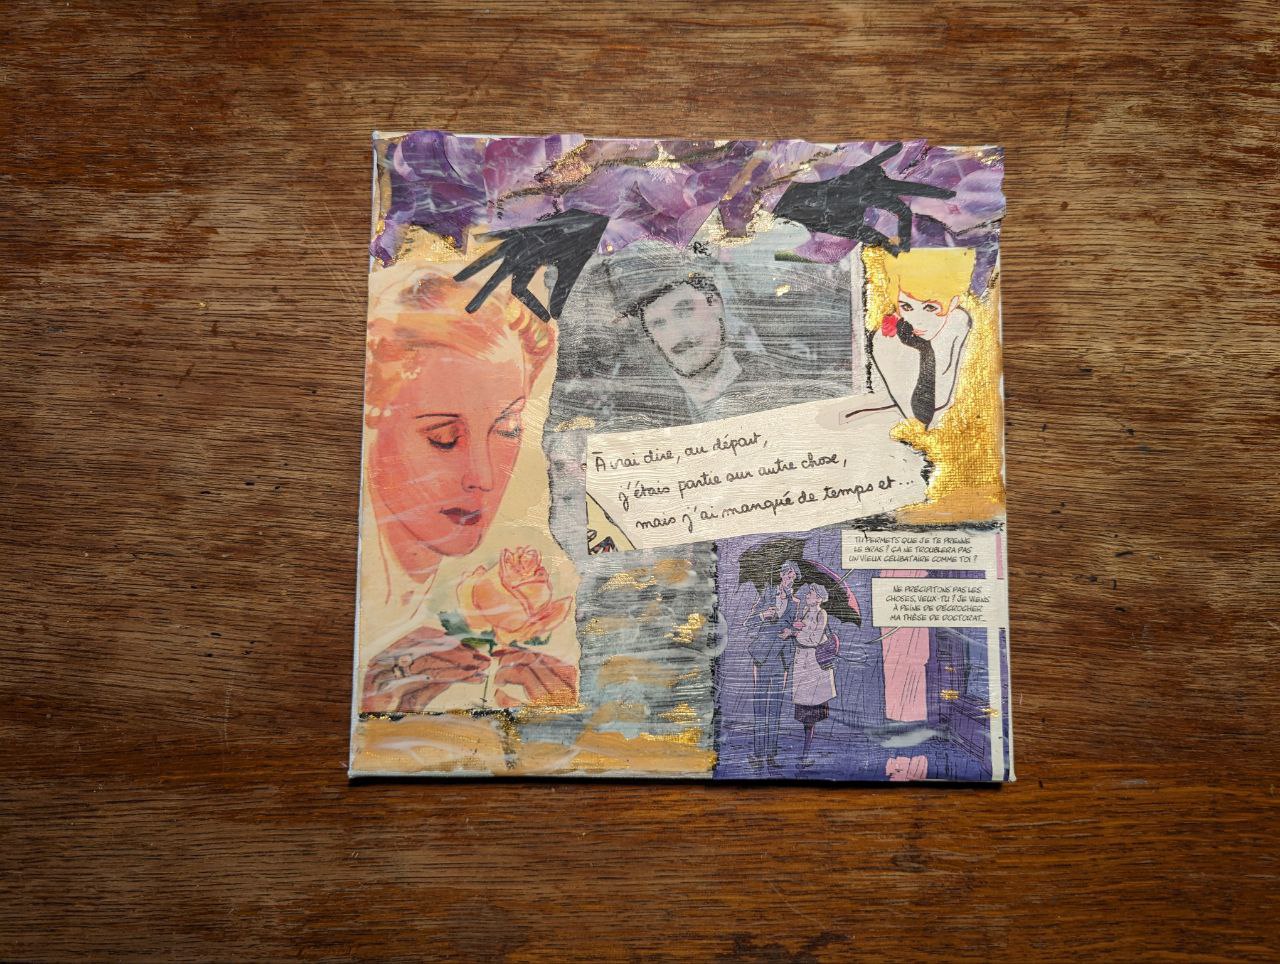 À vrai dire, au départ,
j'étais partie sur autre chose,
mais j'ai manqué de temps et...
TU PERMETS QUE JE TE PRENNE
LE BRAS ? ÇA NE TROUBLERA PAS
UN VIEUX CÉLIBATAIRE COMME TOI ?
NE PRÉCIPITONS PAS LES
CHOSES, VEUX-TU ? JE VIENS
À PEINE DE DÉCROCHER
MA THÈSE DE DOCTORAT...